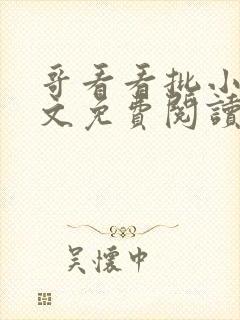 哥看看批小
文免費閱讀
吳懷中